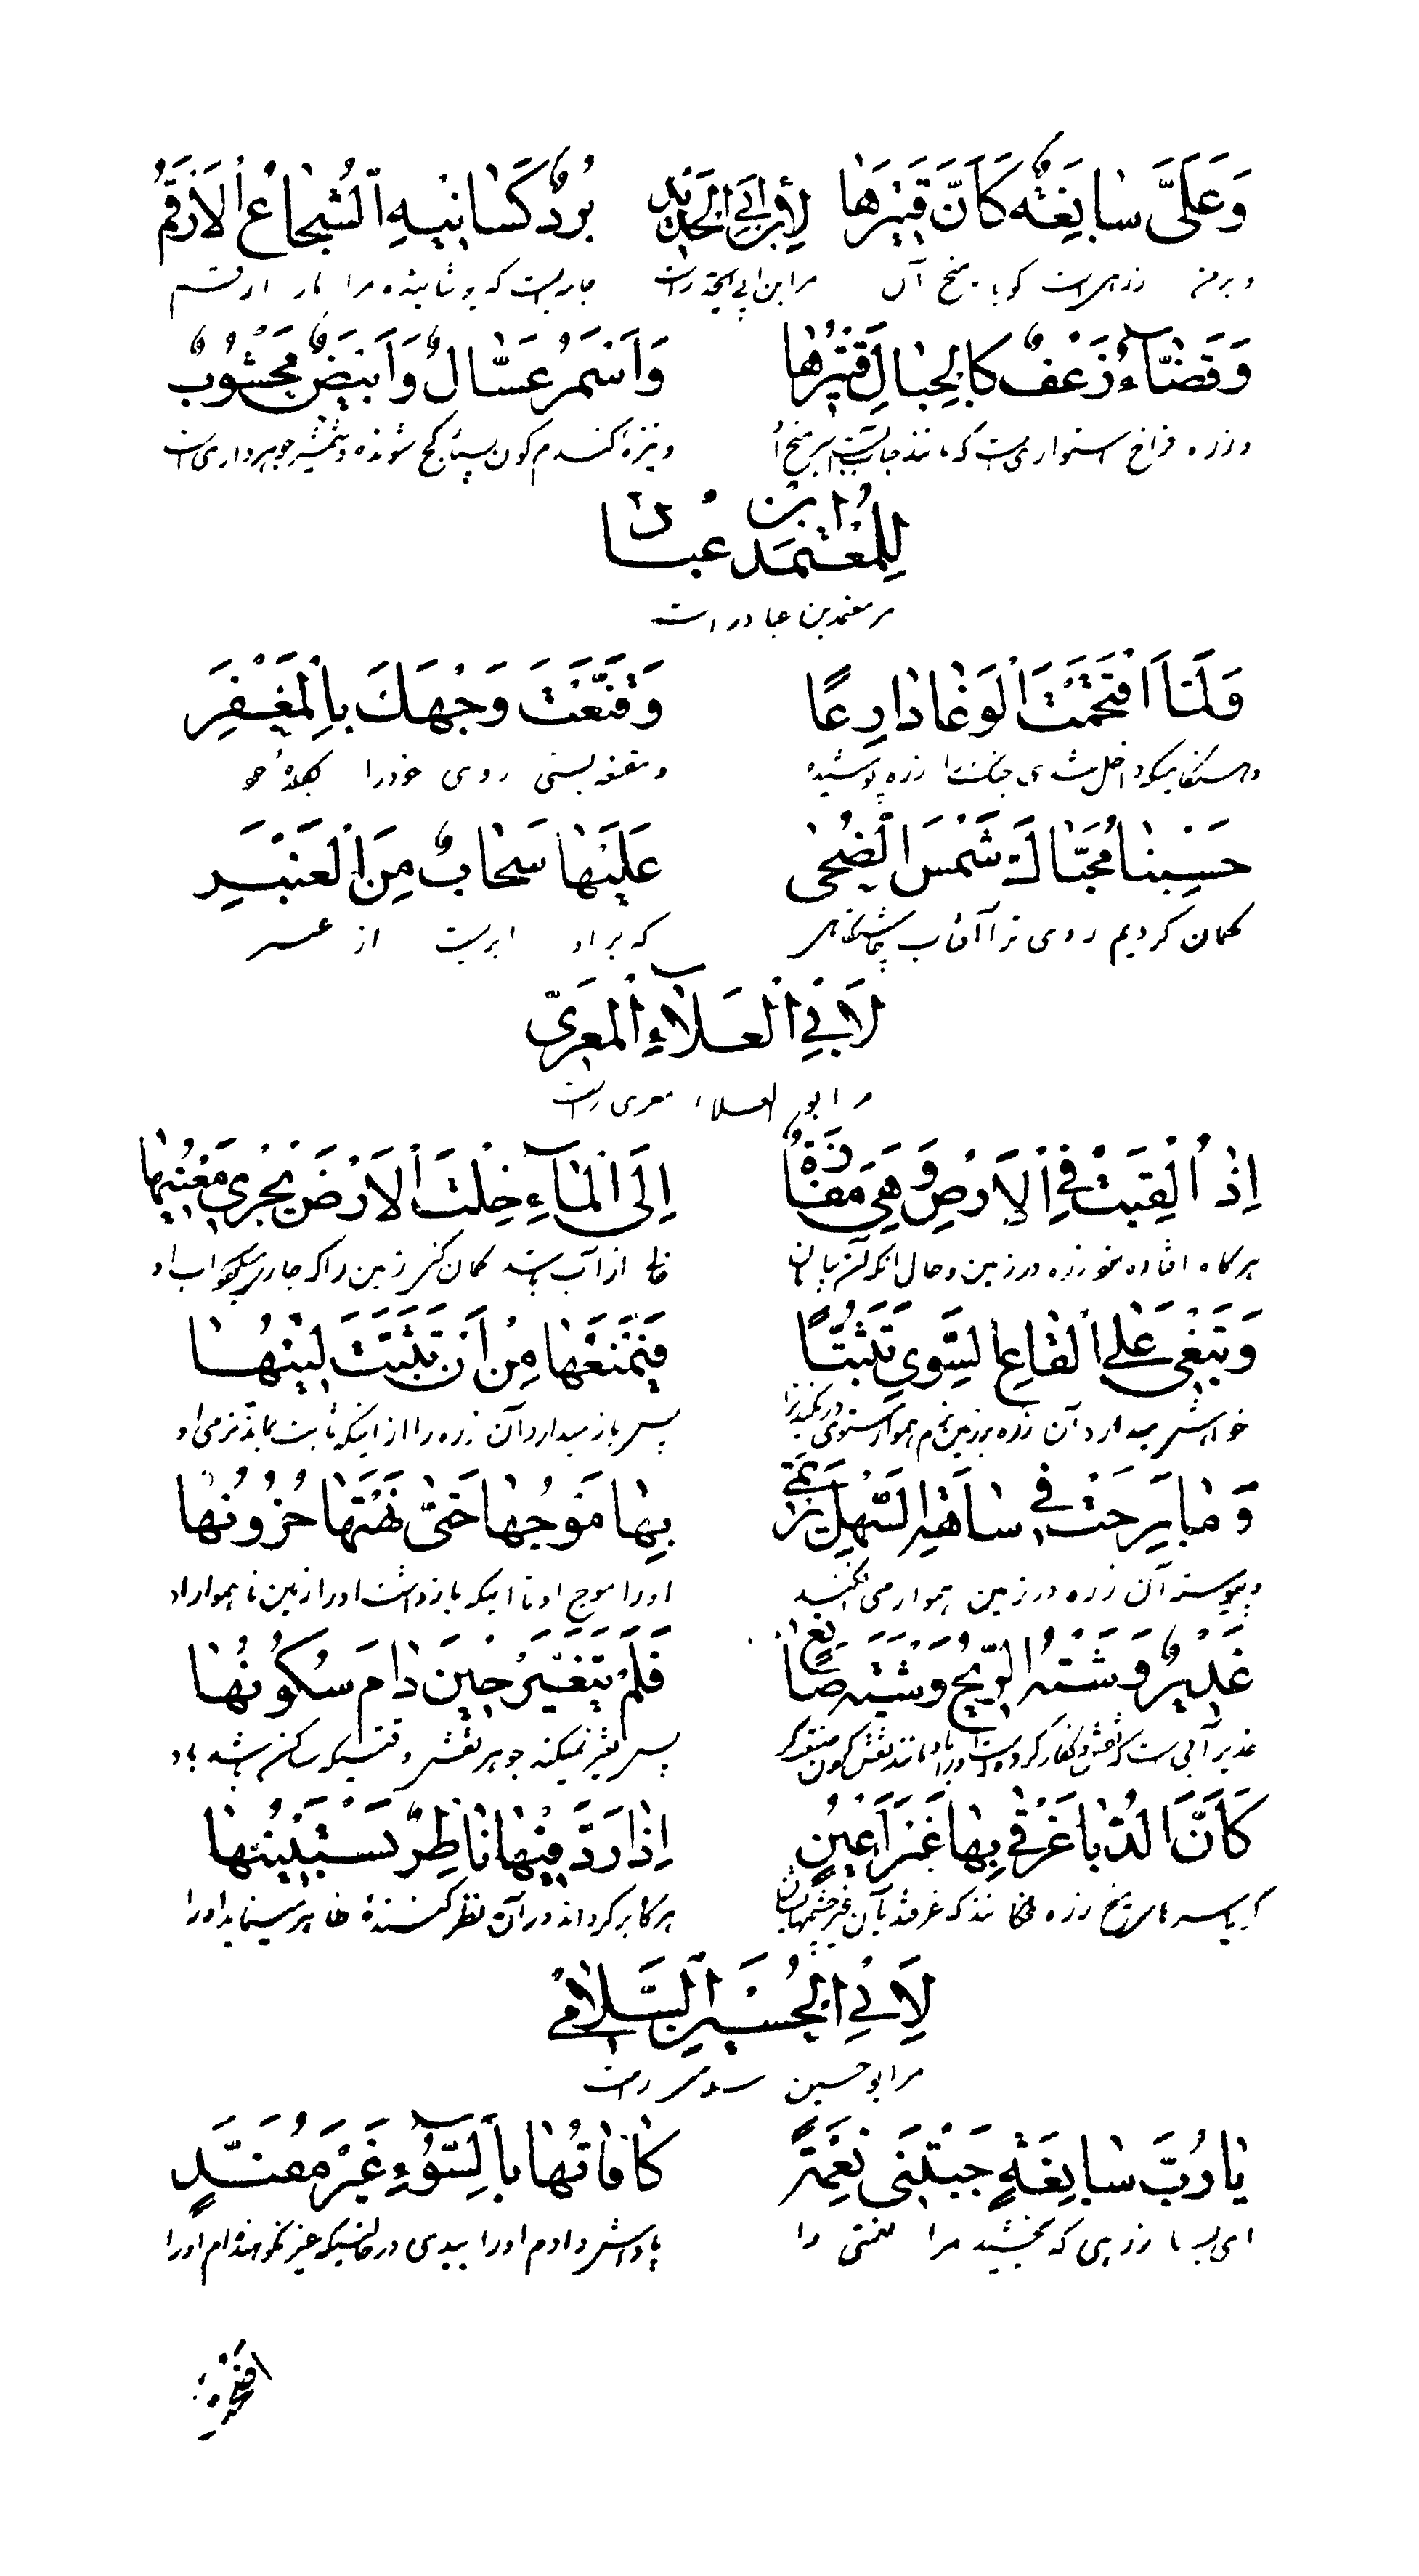 وَعَلَیَّ سابِغَةٌ کَاَنَّ قَتیرَها لِابْنِ اَبِي الْحَدیدِ بُرْدٌ کَسانیهِ الشُّجاعُ الْاَرْقَمُ
و بر من زرهی است که گویا میخ آن مر ابن ابی الحدید راست جامه ایست که پوشانیده مرا مار ارقم
وَقَضّآءُ زَعْفٌ کَالْحِبالِ قَتیرُها وَاَسْمَرُ عَسّالٌ وَاَبْیَضُ مَخْشُوبٌ
و زره فراخ استواری است که مانند میخ و نیزهٔ گندم گون بسیار کج شونده و شمشیر جوهرداری است
لِلْمُعْتَمَدِ ابْنِ عَبّاد
مر معتمد بن عباد راست
وَلَمّا اَقْتَحَمْتَ الْوَغا دارِعًا وَقَنَّعْتَ وَجْهَكَ بِالْمِغْفَرِ
و هنگامیکه داخل شدی جنگ را زره پوشیده و مقنعه بستی روی خود را بکلاه خود
حَسِبْنا مُحَیّاكَ شَمْسَ الضُّحی عَلَیْها سَحابٌ مِنَ الْعَنْبَرِ
گمان کردیم روی ترا آفتاب چاشتگاهی که بر او ابریست از عنبر
لِاَبِي الْعَلآءِ الْمَعَرّي
مر ابو العلاء معری راست
اِذْ اُلْقِیَتْ فِي الْاَرْضِ وَهِيَ مَفازَةٌ اِلَی الْمآءِ خِلْتَ الْاَرْضَ یَجْري مَعْینُها
هرگاه افتاده شود زره در زمین و حال آنکه آن بیابان از آب باشد گمان کنی زمین را که جاری میشود آب او
وَتَبْغی عَلَی الْقاعِ السَّوِيِّ تَثَبُّتًا فَیَمْنَعُها مِنْ اَنْ تَثَبَّتَ لینُها
خواهش میدارد آن زره بر زمین هموار مستوی پس باز میدارد آن زره را از اینکه ثابت بماند نرمی او
وَما بَرِحَتْ في ساهَةِ السَّهْلِ یَرْتَمي بِها مَوْجُها حَتّی نَهَتْها حُزُونُها
و پیوسته آن زره در زمین هموار می افکند او را موج او تا اینکه باز داشت او را زمین ناهموار او
غَدیرٌ وَشَتْهُ الرّیحُ وَشْيَةَ صانِعٍ فَلَمْ یَتَغَیَّرْ حینَ دامَ سُکُونُها
غدیر آبی است که او را باد مانند نقش کردن پس تغیر نمیکند جوهر نقش وقتیکه ساکن باشد باد
کَاَنَّ الدَّبا غَرْقی بِها غَیْرَ اَعْیُنٍ اِذا رَدَّ فیها ناظِرٌ یَسْتَبینُها
گویا سرهای میخ زره ملخانند که غرقند بآن غیر چشمهاشان هرگاه برگرداند در آن نظر کننده ظاهر مینماید او را
لِاَبِي الْحُسَیْنِ السَّلامي
مر ابو حسین سلامی راست
یا رُبَّ سابِغَةٍ حَبَتْني نِعْمَةً کافَأْتُها بِالسُّوءِ غَیْرَ مُفَنَّدٍ
ای بسا زرهی که بخشید مرا نعمتی را پاداش دادم او را ببدی در حالتیکه غیر نکوهیده ام او را